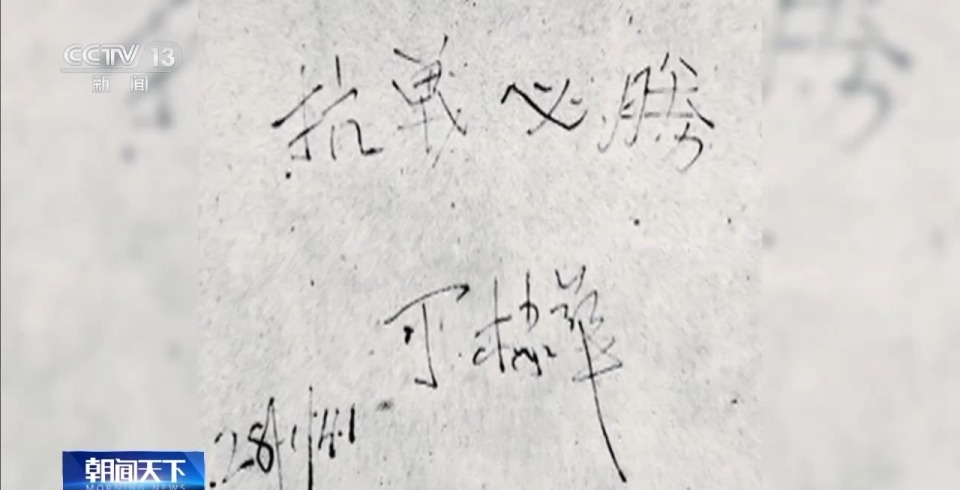 CCTV 13
新闻
抗戰必勝
28/1/41
朝闻天下
MORNING NEWS